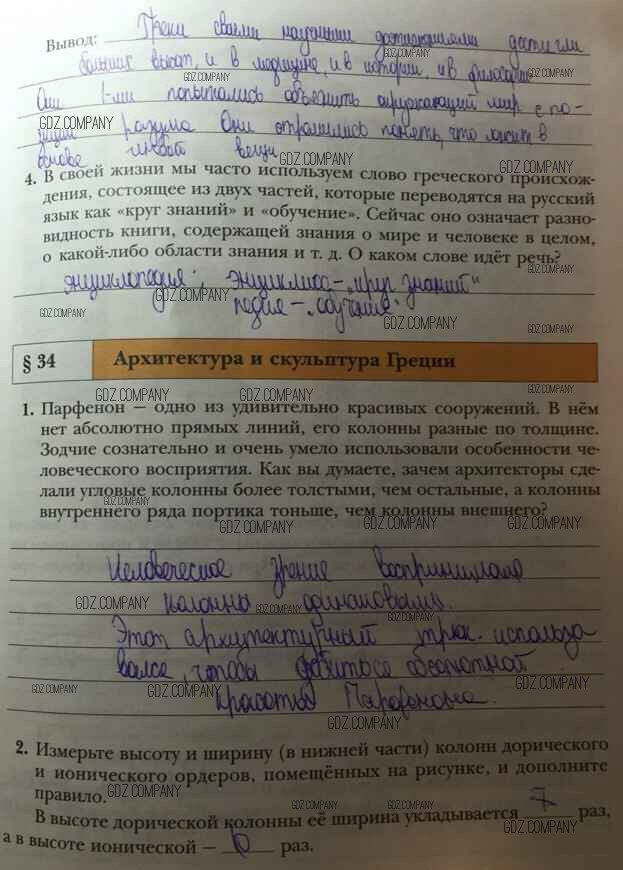 Вывод: Греки своими научными достижениями достигли
больших высот, и в медицине, и в истории, и в философии
GDZ.COMPANY
Они 1-ми попытались объяснить окружающий мир с по-
GDZ.COMPANY
зиции разума Они стремились понять, что лежит в
основе любой вещи
GDZ.COMPANY
4. В своей жизни мы часто используем слово греческого происхож-
дения, состоящее из двух частей, которые переводятся на русский
язык как «круг знаний» и «обучение». Сейчас оно означает разно-
видность книги, содержащей знания о мире и человеке в целом,
о какой-либо области знания и т. д. О каком слове идёт речь?
GDZ.COMPANY
энциклопедия; - „круг знаний"
GDZ.COMPANY
- „обучение"
GDZ.COMPANY GDZ.COMPANY
§ 34 Архитектура и скульптура Греции
GDZ.COMPANY GDZ.COMPANY GDZ.COMPANY
1. Парфенон — одно из удивительно красивых сооружений. В нём
нет абсолютно прямых линий, его колонны разные по толщине.
Зодчие сознательно и очень умело использовали особенности че-
ловеческого восприятия. Как вы думаете, зачем архитекторы сде-
лали угловые колонны более толстыми, чем остальные, а колонны
внутреннего ряда портика тоньше, чем колонны внешнего?
GDZ.COMPANY GDZ.COMPANY GDZ.COMPANY
Человеческое зрение воспринимало
GDZ.COMPANY колонны GDZ.COMPANY одинаковыми. GDZ.COMPANY
Этот архитектурный трюк использо
вался, чтобы добиться абсолютной
GDZ.COMPANY GDZ.COMPANY GDZ.COMPANY GDZ.COMPANY
красоты Парфенона.
GDZ.COMPANY
2. Измерьте высоту и ширину (в нижней части) колонн дорического
и ионического ордеров, помещённых на рисунке, и дополните
правило.
GDZ.COMPANY
В высоте дорической колонны её ширина укладывается 7 раз,
GDZ.COMPANY
а в высоте ионической — раз.